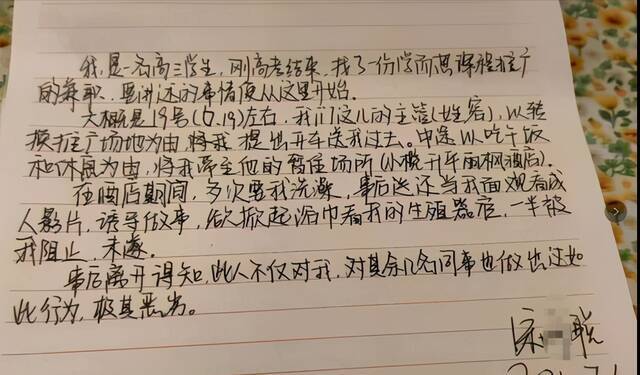 我是一名高三学生,刚高考结束,找了一份学而思课程推广
的兼职,要讲述的事情便从这里开始。
大概是19号(6.19)左右,我们这儿的主管(姓容),以转
换推广场地为由,将我提出开车送我过去。中途以吃午饭
和休息为由,将我带至他的暂住场所(小榄千年雨枫酒店)。
在酒店期间,多次要我洗澡,事后还当我面观看成
人影片,诱导做事,欲掀起浴巾看我的生殖器官,一半被
我阻止,未遂。
事后离开得知,此人不仅对我,对其余几名同事也做出过如
此行为,极其恶劣。